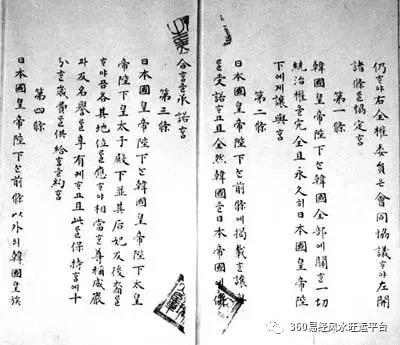 仍ᄒᆞ야右全權委員은會同協議ᄒᆞ야左開
諸條를協定홈
第一條
韓國皇帝陛下ᄂᆞᆫ韓國全部에關ᄒᆞᆫ一切
統治權을完全且永久히日本國皇帝陛
下에게讓與홈
第二條
日本國皇帝陛下ᄂᆞᆫ前條에揭載ᄒᆞᆫ讓與
를受諾ᄒᆞ고且全然韓國을日本帝國에倂
合홈을承諾홈
第三條
日本國皇帝陛下ᄂᆞᆫ韓國皇帝陛下太皇
帝陛下皇太子殿下並其后妃及後裔로
ᄒᆞ야곰各其地位를應ᄒᆞ야相當ᄒᆞᆫ尊稱威嚴
과及名譽를享有케ᄒᆞ고且此를保持홈에十
分ᄒᆞᆫ歲費를供給홈을約홈
第四條
日本國皇帝陛下ᄂᆞᆫ前條以外의韓國皇族
360易经风水旺运平台